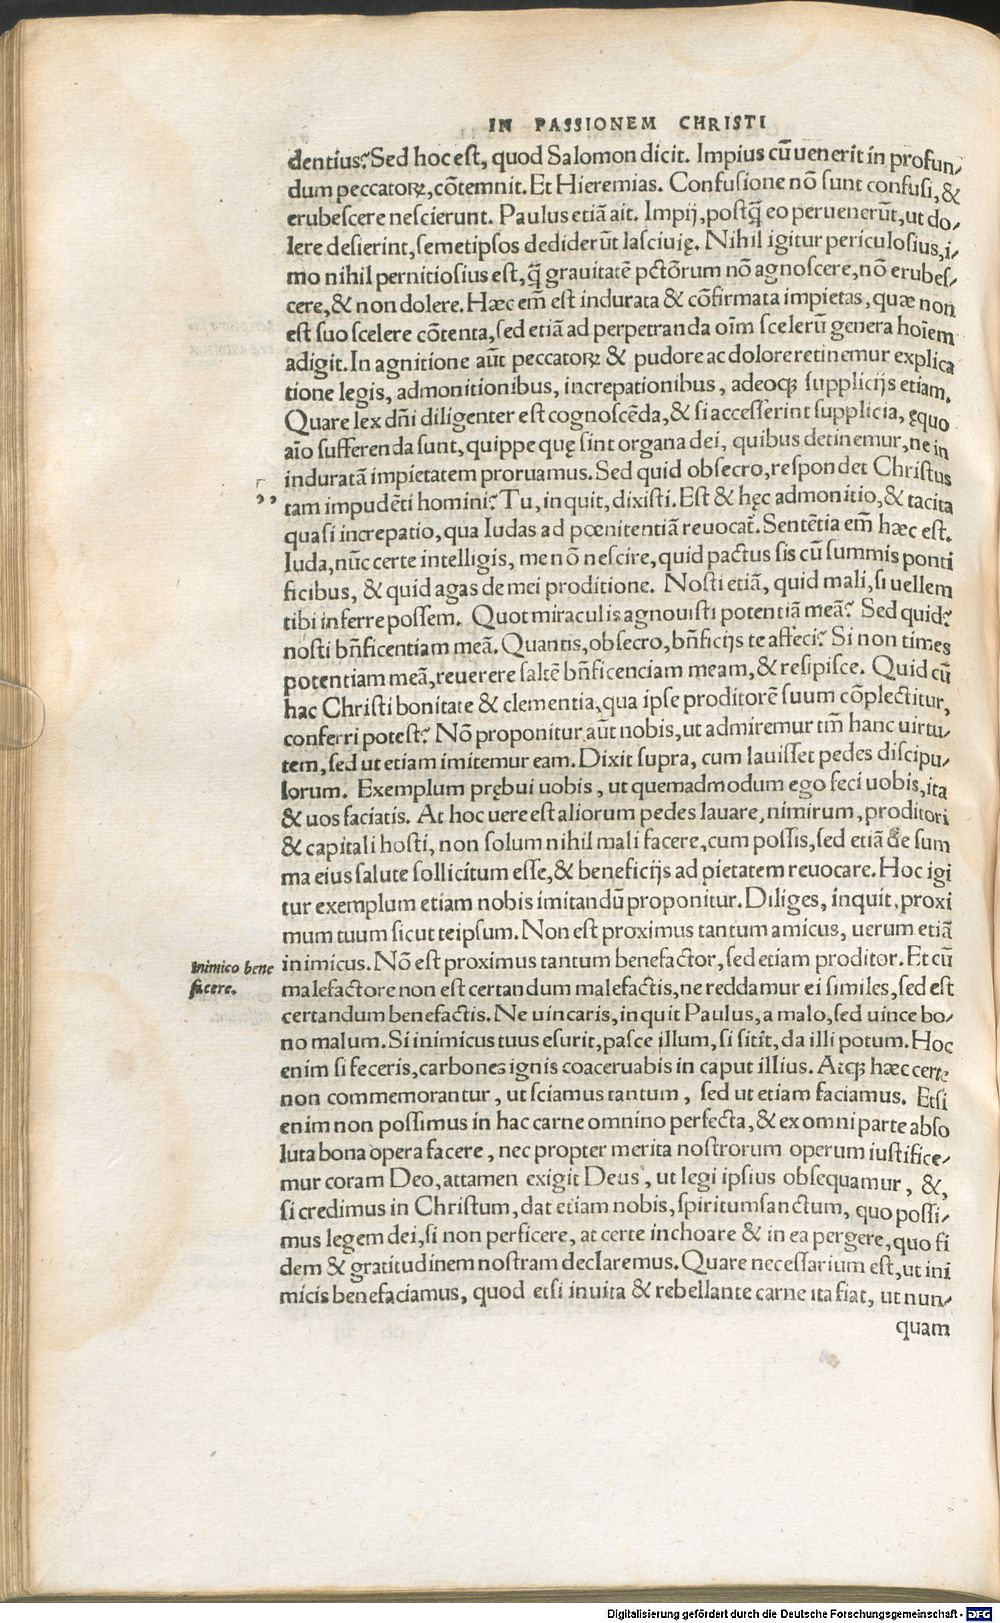 IN PASSIONEM CHRISTI
dentius? Sed hoc est, quod Salomon dicit. Impius cū uenerit in profun-
dum peccatorꝝ, cōtemnit. Et Hieremias. Confusione nō sunt confusi, &
erubescere nescierunt. Paulus etiā ait. Impij, postq̄ eo peruenerūt, ut do-
lere desierint, semetipsos dediderūt lasciuię. Nihil igitur periculosius, i-
mo nihil pernitiosius est, q̄ grauitatē pctōrum nō agnoscere, nō erubes-
cere, & non dolere. Hæc em̄ est indurata & cōfirmata impietas, quæ non
est suo scelere cōtenta, sed etiā ad perpetranda oīm scelerū genera hoīem
adigit. In agnitione aūt peccatorꝝ & pudore ac dolore retinemur explica
tione legis, admonitionibus, increpationibus, adeoqꝫ supplicijs etiam.
Quare lex dn̄i diligenter est cognoscēda, & si accesserint supplicia, ęquo
aīo sufferenda sunt, quippe quę sint organa dei, quibus detinemur, ne in
induratā impietatem proruamus. Sed quid obsecro, respondet Christus
tam impudēti homini? Tu, inquit, dixisti. Est & hęc admonitio, & tacita
quasi increpatio, qua Iudas ad pœnitentiā reuocat̄. Sentētia em̄ hæc est.
Iuda, nūc certe intelligis, me nō nescire, quid pactus sis cū summis ponti
ficibus, & quid agas de mei proditione. Nosti etiā, quid mali, si uellem
tibi inferre possem. Quot miraculis agnouisti potentiā meā? Sed quid?
nosti bn̄ficentiam meā. Quantis, obsecro, bn̄ficijs te affeci? Si non times
potentiam meā, reuerere saltē bn̄ficenciam meam, & resipisce. Quid cū
hac Christi bonitate & clementia, qua ipse proditorē suum cōplectitur,
conferri potest? Nō proponitur aūt nobis, ut admiremur tm̄ hanc uirtu-
tem, sed ut etiam imitemur eam. Dixit supra, cum lauisset pedes discipu-
lorum. Exemplum prębui uobis, ut quemadmodum ego feci uobis, ita
& uos faciatis. At hoc uere est aliorum pedes lauare, nimirum, proditori
& capitali hosti, non solum nihil mali facere, cum possis, sed etiā de sum
ma eius salute sollicitum esse, & beneficijs ad pietatem reuocare. Hoc igi
tur exemplum etiam nobis imitandū proponitur. Diliges, inquit, proxi
mum tuum sicut teipsum. Non est proximus tantum amicus, uerum etiā
Inimico bene
facere.
inimicus. Nō est proximus tantum benefactor, sed etiam proditor. Et cū
malefactore non est certandum malefactis, ne reddamur ei similes, sed est
certandum benefactis. Ne uincaris, inquit Paulus, a malo, sed uince bo-
no malum. Si inimicus tuus esurit, pasce illum, si sitit, da illi potum. Hoc
enim si feceris, carbones ignis coaceruabis in caput illius. Atqꝫ hæc certe
non commemorantur, ut sciamus tantum, sed ut etiam faciamus. Etsi
enim non possimus in hac carne omnino perfecta, & ex omni parte abso
luta bona opera facere, nec propter merita nostrorum operum iustifice-
mur coram Deo, attamen exigit Deus, ut legi ipsius obsequamur, &,
si credimus in Christum, dat etiam nobis, spiritumsanctum, quo possi-
mus legem dei, si non perficere, at certe inchoare & in ea pergere, quo fi
dem & gratitudinem nostram declaremus. Quare necessarium est, ut ini
micis benefaciamus, quod etsi inuita & rebellante carne ita fiat, ut nun-
quam
Digitalisierung gefördert durch die Deutsche Forschungsgemeinschaft - DFG